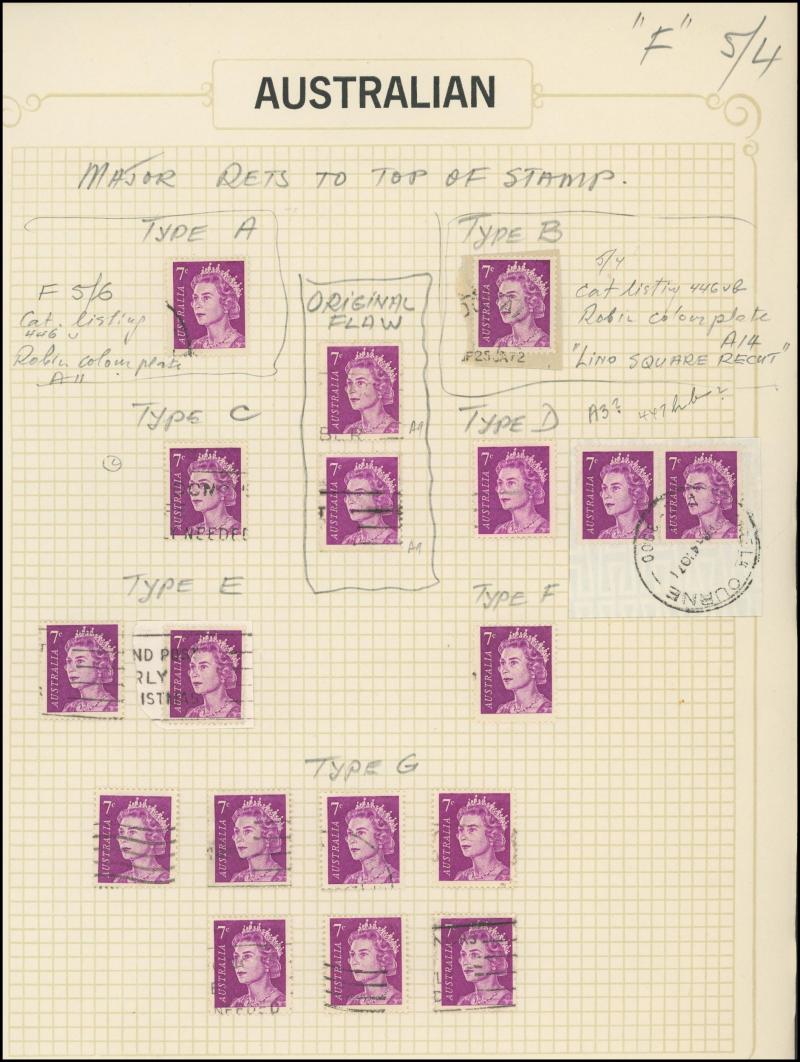 "F" 5/4
AUSTRALIAN
MAJOR RETS TO TOP OF STAMP.
TYPE A
F 5/6
Cat. listing
446 v
Robin colour plate
A11
7c
AUSTRALIA
ORIGINAL
FLAW
7c
AUSTRALIA
A1
7c
AUSTRALIA
A1
TYPE B
5/4
Cat listing 446vB
Robin colour plate
A14
"LINO SQUARE RECUT"
7c
AUSTRALIA
25 JA 72
TYPE C
7c
AUSTRALIA
NEEDED
TYPE D
A3?
7c
AUSTRALIA
7c
AUSTRALIA
7c
AUSTRALIA
OURNE
TYPE E
7c
AUSTRALIA
7c
AUSTRALIA
ND POST
RLY
ISTMAS
TYPE F
7c
AUSTRALIA
TYPE G
7c
AUSTRALIA
7c
AUSTRALIA
7c
AUSTRALIA
7c
AUSTRALIA
7c
AUSTRALIA
NEEDED
7c
AUSTRALIA
7c
AUSTRALIA